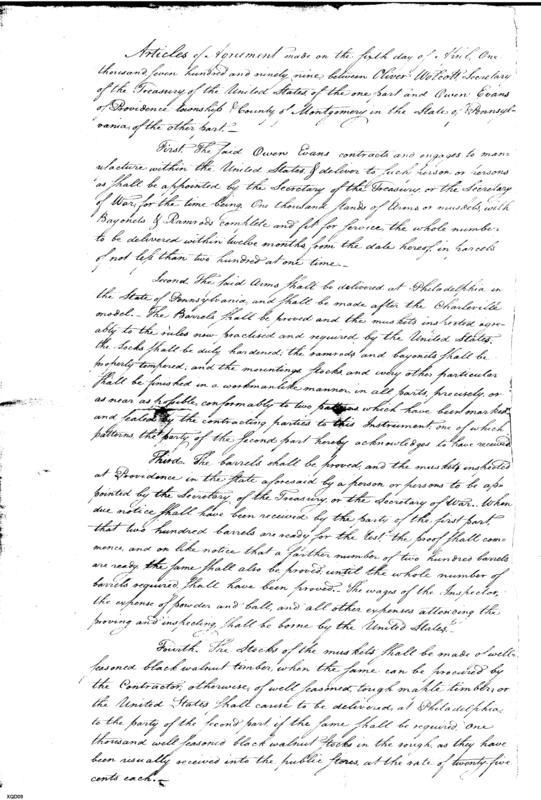 Articles of Agreement made on the sixth day of April, One
thousand seven hundred and ninety nine between Oliver Wolcott Secretary
of the Treasury of the United States of the one part and Owen Evans
of Providence township & County of Montgomery in the State of Pennsyl-
vania, of the other part.—
First. The said Owen Evans contracts and engages to man-
ufacture within the United States, & deliver to such person or persons
as shall be appointed by the Secretary of the Treasury or the Secretary
of War, for the time being, One thousand stands of Arms or muskets, with
Bayonets & Ramrods complete and fit for service, the whole number
to be delivered within twelve months from the date hereof, in parcels
of not less than two hundred at one time—
Second. The said Arms shall be delivered at Philadelphia in
the State of Pennsylvania, and shall be made after the Charleville
model.— The Barrels shall be proved and the muskets inspected agree-
ably to the rules now practised and required by the United States,
the locks shall be duly hardened; the ramrods and bayonets shall be
properly tempered; and the mountings, stocks, and every other particular
shall be finished in a workmanlike manner in all parts, precisely, or
as near as possible, conformably to two patterns which have been marked
and sealed by the contracting parties to this Instrument, one of which
patterns, the party of the second part hereby acknowledges to have received
Third. The barrels shall be proved, and the muskets inspected
at Providence in the state aforesaid by a person or persons to be ap-
pointed by the Secretary of the Treasury or the Secretary of War. When
due notice shall have been received by the party of the first part
that two hundred barrels are ready for the test the proof shall com-
mence, and on like notice that a farther number of two hundred barrels
are ready the same shall also be proved, until the whole number of
barrels required, shall have been proved. The wages of the Inspector,
the expense of powder and ball, and all other expenses attending the
proving and inspecting, shall be borne by the United States.
Fourth. The Stocks of the muskets shall be made of well-
seasoned black walnut timber, when the same can be procured by
the Contractor, otherwise, of well seasoned, tough maple timber, or
the United States shall cause to be delivered, at Philadelphia,
to the party of the second part, if the same shall be required, One
thousand well seasoned black walnut stocks in the rough, as they have
been usually received into the public stores, at the rate of twenty five
cents each.—
XQD09